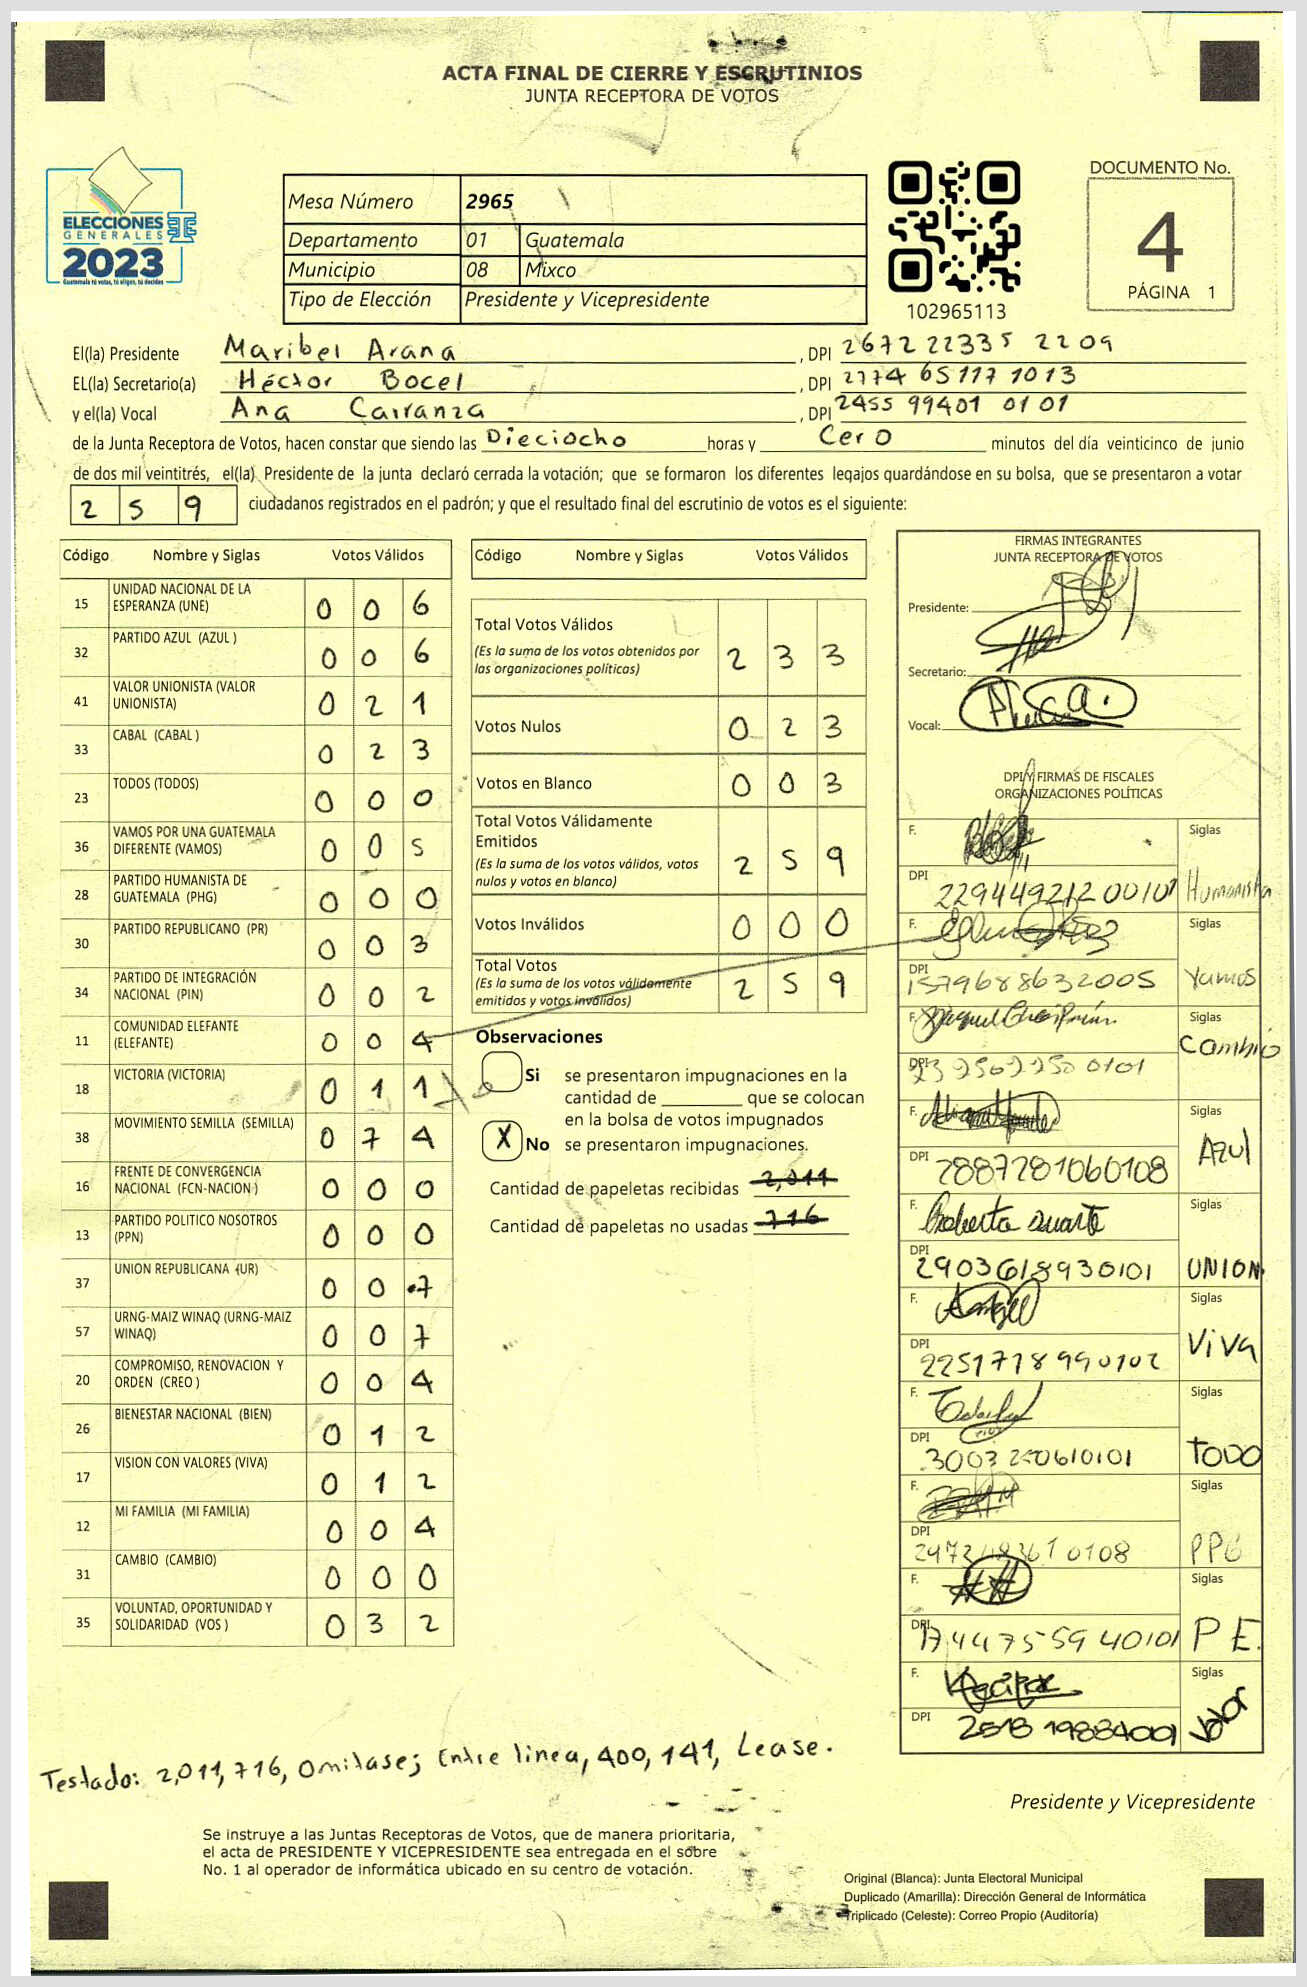 ACTA FINAL DE CIERRE Y ESCRUTINIOS
JUNTA RECEPTORA DE VOTOS
ELECCIONES
GENERALES
2023
Guatemala tú votas, tú eliges, tú decides
Mesa Número 2965
Departamento 01 Guatemala
Municipio 08 Mixco
Tipo de Elección Presidente y Vicepresidente
102965113
DOCUMENTO No.
4
PÁGINA 1
El(la) Presidente Maribel Arana , DPI 2672 22335 2209
EL(la) Secretario(a) Héctor Bocel , DPI 2774 65117 1013
y el(la) Vocal Ana Carranza , DPI 2455 99401 0101
de la Junta Receptora de Votos, hacen constar que siendo las Dieciocho horas y Cero minutos del día veinticinco de junio
de dos mil veintitrés, el(la) Presidente de la junta declaró cerrada la votación; que se formaron los diferentes legajos guardándose en su bolsa, que se presentaron a votar
2 5 9 ciudadanos registrados en el padrón; y que el resultado final del escrutinio de votos es el siguiente:
Código Nombre y Siglas Votos Válidos
15 UNIDAD NACIONAL DE LA ESPERANZA (UNE) 0 0 6
32 PARTIDO AZUL (AZUL ) 0 0 6
41 VALOR UNIONISTA (VALOR UNIONISTA) 0 2 1
33 CABAL (CABAL ) 0 2 3
23 TODOS (TODOS) 0 0 0
36 VAMOS POR UNA GUATEMALA DIFERENTE (VAMOS) 0 0 5
28 PARTIDO HUMANISTA DE GUATEMALA (PHG) 0 0 0
30 PARTIDO REPUBLICANO (PR) 0 0 3
34 PARTIDO DE INTEGRACIÓN NACIONAL (PIN) 0 0 2
11 COMUNIDAD ELEFANTE (ELEFANTE) 0 0 4
18 VICTORIA (VICTORIA) 0 1 1
38 MOVIMIENTO SEMILLA (SEMILLA) 0 7 4
16 FRENTE DE CONVERGENCIA NACIONAL (FCN-NACION ) 0 0 0
13 PARTIDO POLITICO NOSOTROS (PPN) 0 0 0
37 UNION REPUBLICANA (UR) 0 0 7
57 URNG-MAIZ WINAQ (URNG-MAIZ WINAQ) 0 0 7
20 COMPROMISO, RENOVACION Y ORDEN (CREO ) 0 0 4
26 BIENESTAR NACIONAL (BIEN) 0 1 2
17 VISION CON VALORES (VIVA) 0 1 2
12 MI FAMILIA (MI FAMILIA) 0 0 4
31 CAMBIO (CAMBIO) 0 0 0
35 VOLUNTAD, OPORTUNIDAD Y SOLIDARIDAD (VOS ) 0 3 2
Código Nombre y Siglas Votos Válidos
Total Votos Válidos 2 3 3
(Es la suma de los votos obtenidos por
las organizaciones políticas)
Votos Nulos 0 2 3
Votos en Blanco 0 0 3
Total Votos Válidamente
Emitidos 2 5 9
(Es la suma de los votos válidos, votos
nulos y votos en blanco)
Votos Inválidos 0 0 0
Total Votos 2 5 9
(Es la suma de los votos válidamente
emitidos y votos inválidos)
Observaciones
Si se presentaron impugnaciones en la
cantidad de que se colocan
en la bolsa de votos impugnados
X No se presentaron impugnaciones.
Cantidad de papeletas recibidas 2,011
Cantidad de papeletas no usadas 716
FIRMAS INTEGRANTES
JUNTA RECEPTORA DE VOTOS
Presidente:
Secretario:
Vocal:
DPI Y FIRMAS DE FISCALES
ORGANIZACIONES POLÍTICAS
F. Siglas
DPI 2294492120010 Humanista
F. Siglas
DPI 1579688632005 Vamos
F. Siglas
DPI Cambio
F. Siglas
DPI 2887281060108 Azul
F. Roberta Duarte Siglas
DPI 2903618930101 UNION
F. Siglas
DPI 2251718990102 Viva
F. Siglas
DPI 3003 250610101 TODO
F. Siglas
DPI 0108
F. Siglas
DPI 1744755940101 P E.
F. Siglas
DPI 2518 19884001 Valor
Testado: 2,011, 716, Omitase; Entre linea, 400, 141, Lease.
Presidente y Vicepresidente
Se instruye a las Juntas Receptoras de Votos, que de manera prioritaria,
el acta de PRESIDENTE Y VICEPRESIDENTE sea entregada en el sobre
No. 1 al operador de informática ubicado en su centro de votación.
Original (Blanca): Junta Electoral Municipal
Duplicado (Amarilla): Dirección General de Informática
Triplicado (Celeste): Correo Propio (Auditoría)